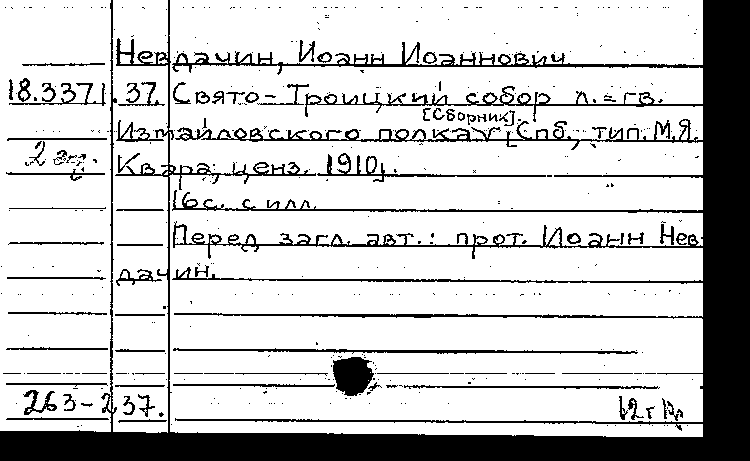 Невдачин, Иоанн Иоаннович
18.3371.37. Свято-Троицкий собор л.=гв.
[Сборник].
Измайловского полка V [Спб., тип. М.Я.
2 экз. Квара, ценз. 1910].
16 с. с илл.
Перед загл. авт.: прот. Иоанн Нев-
дачин.
263-237.